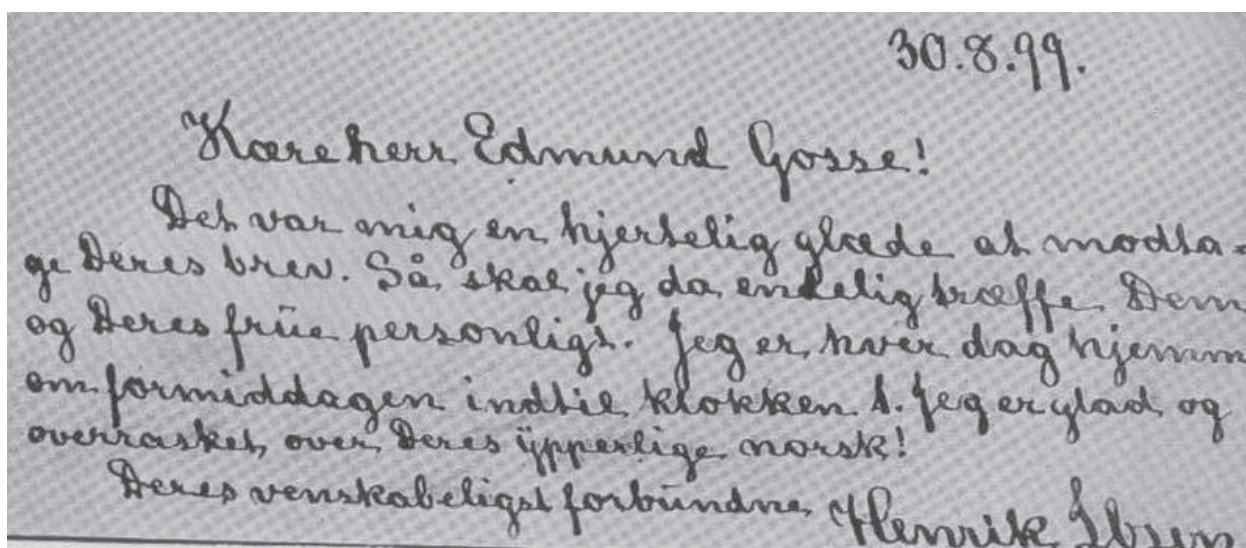 30.8.99.
Kære herr Edmund Gosse!
Det var mig en hjertelig glæde at modta-
ge Deres brev. Så skal jeg da endelig træffe Dem
og Deres frue personligt. Jeg er hver dag hjemm
om formiddagen indtil klokken 1. Jeg er glad og
overrasket over Deres ypperlige norsk!
Deres venskabeligst forbundne
Henrik Ibsen